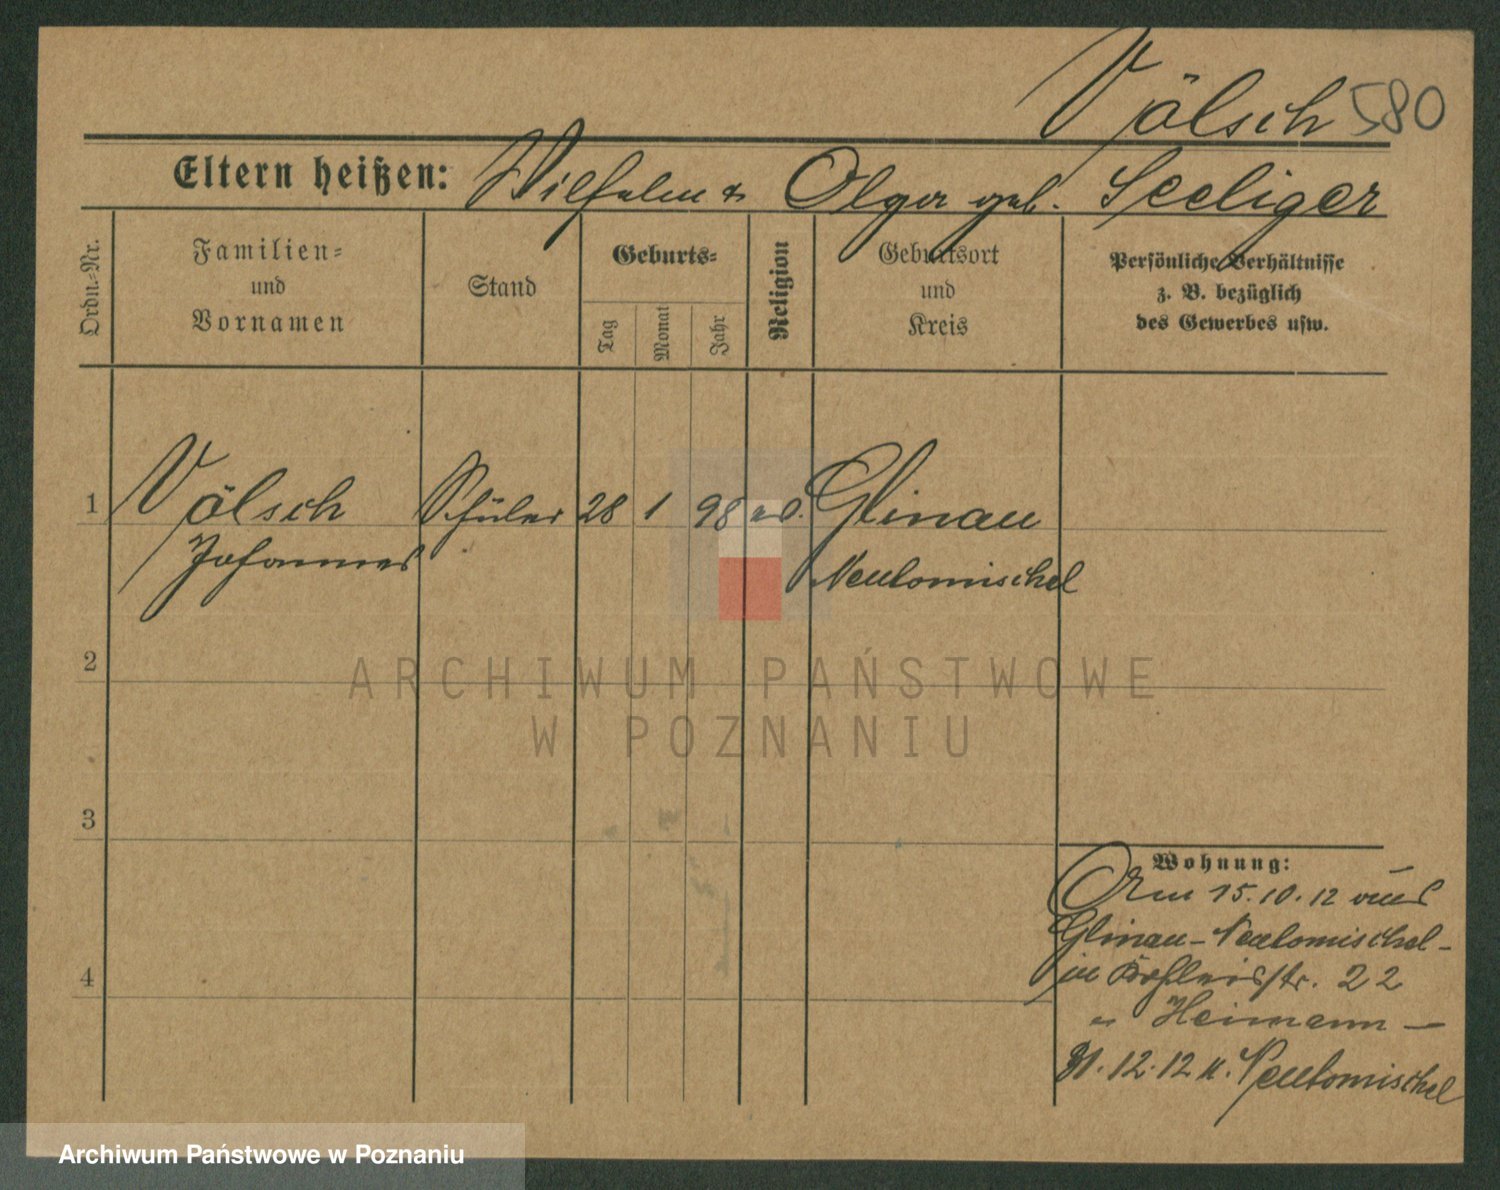 Völsch 580
Eltern heißen: Wilhelm & Olga geb. Seeliger
Ordn.-Nr.
Familien-
und
Vornamen
Stand
Geburts-
Tag
Monat
Jahr
Religion
Geburtsort
und
Kreis
Persönliche Verhältnisse
z. B. bezüglich
des Gewerbes usw.
1 Völsch Schüler 28 1 98 ev. Glinau
Johannes Neutomischel
2
ARCHIWUM PAŃSTWOWE
W POZNANIU
3
Wohnung:
Am 15.10.12 aus
Glinau-Neutomischel-
in 22
Heimann -
31.12.12 n. Neutomischel
4
Archiwum Państwowe w Poznaniu